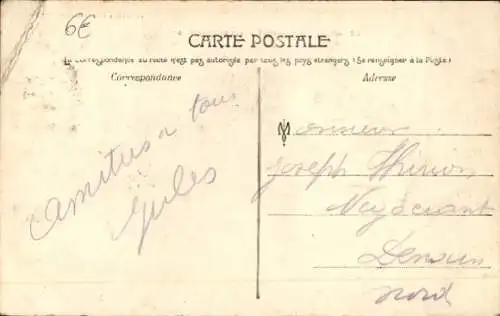 6€
CARTE POSTALE
La Correspondance au recto n'est pas autorisée par tous les pays étrangers (Se renseigner à la Poste)
Correspondance
Adresse
Amitiés a tous
Jules
Monsieur
Joseph Thirion
Négociant
Denain
Nord